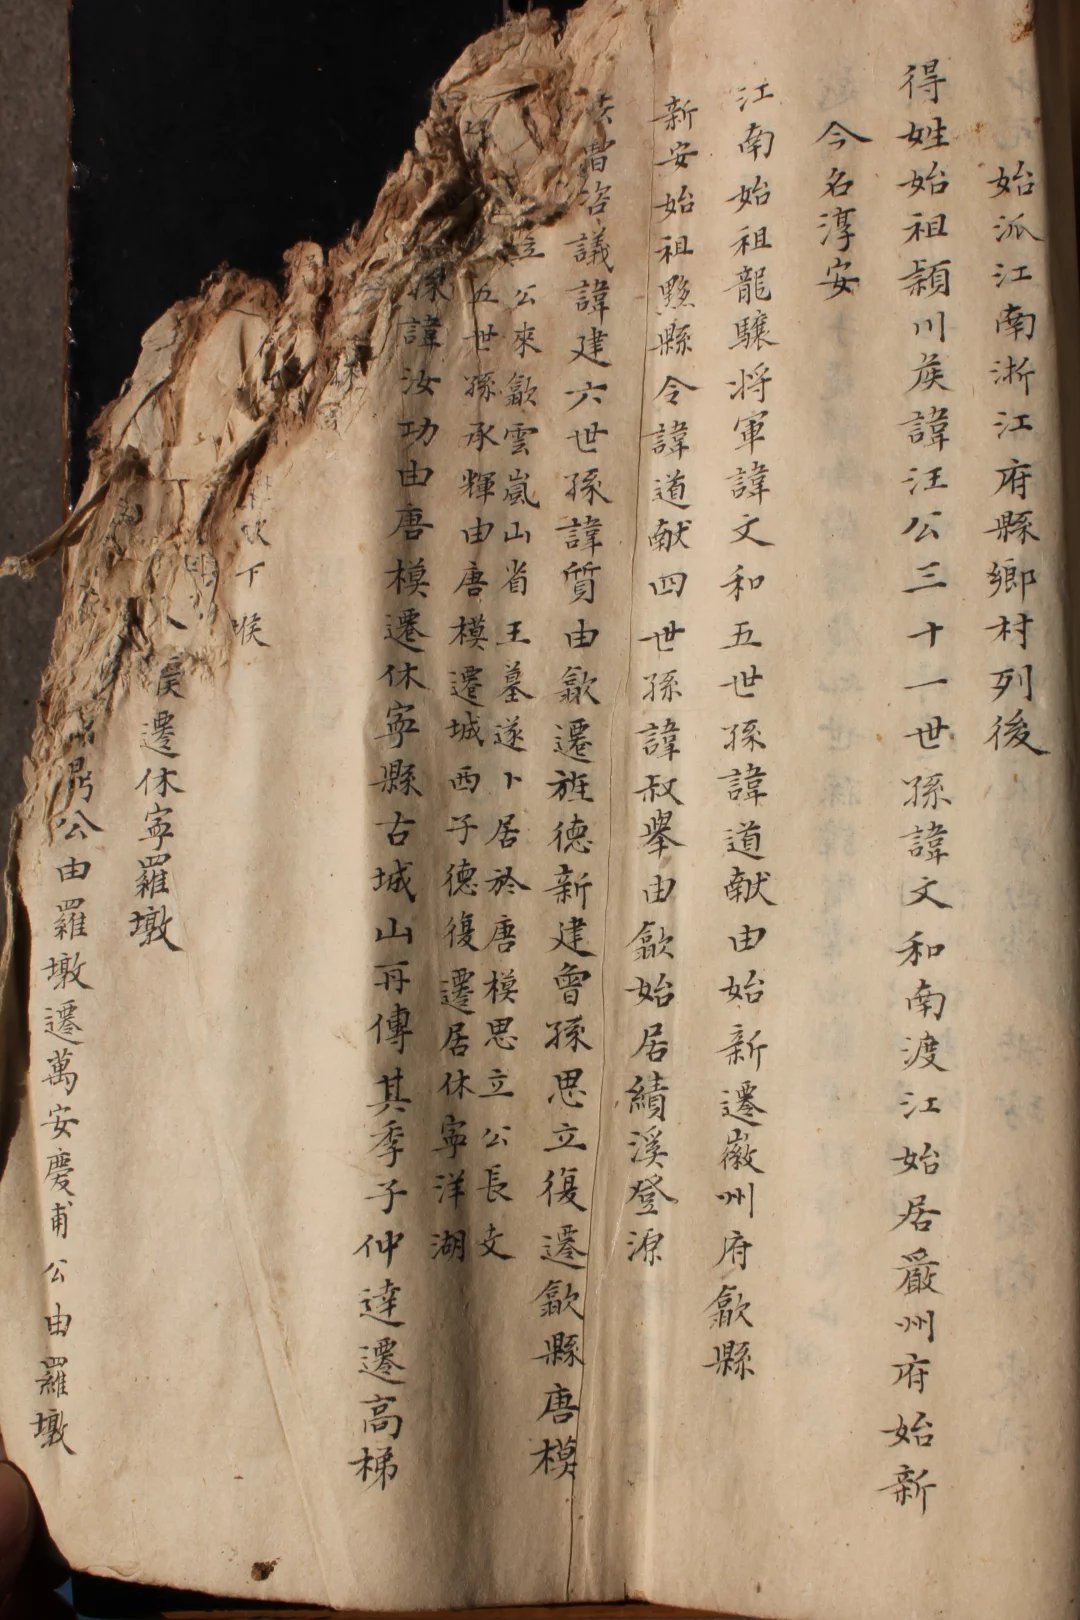 始派江南浙江府縣鄉村列後
得姓始祖潁川侯諱汪公三十一世孫諱文和南渡江始居嚴州府始新
今名淳安
江南始祖龍驤將軍諱文和五世孫諱道献由始新遷徽州府歙縣
新安始祖黟縣令諱道献四世孫諱叔舉由歙始居績溪登源
曹咨議諱建六世孫諱質由歙遷旌德新建曾孫思立復遷歙縣唐模
立公來歙雲嵐山省王墓遂卜居於唐模思立公長支
五世孫承輝由唐模遷城西子德復遷居休寧洋湖
孫諱汝功由唐模遷休寧縣古城山再傳其季子仲達遷高梯
下堠
遷休寧羅墩
公由羅墩遷萬安慶甫公由羅墩